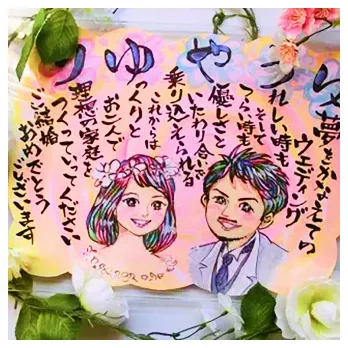 ゆうやゆり
夢をかなえての
ウェディング
れしい時も
そして
つらい時も
優しさと
いたわり合いで
乗り込えられる
これからは
っくりと
お二人で
理想の家庭を
つくっていってください
ご結婚
おめでとうございます